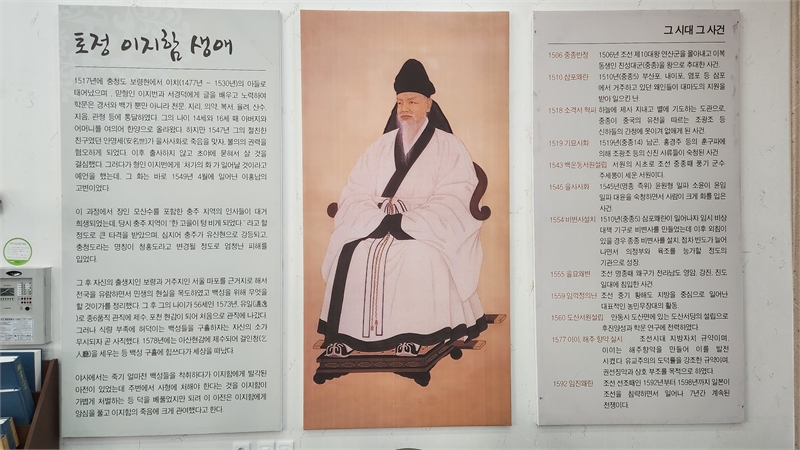 토정 이지함 생애
1517년에 충청도 보령현에서 이치(1477년 ~ 1530년)의 아들로
태어났으며 , 맏형인 이지번과 서경덕에게 글을 배우고 노력하여
학문은 경서와 백가 뿐만 아니라 천문, 지리, 의약, 복서, 율려, 산수,
지음, 관형 등에 통달하였다. 그의 나이 14세와 16세 때 아버지와
어머니를 여의어 한양으로 올라왔다. 하지만 1547년 그의 절친한
친구였던 안명세(安名世)가 을사사화로 죽음을 맞자, 불의의 권력을
혐오하게 되었다. 이후 출사하지 않고 초야에 묻혀서 살 것을
결심했다. 그러다가 형인 이지번에게 '처가의 화'가 일어날 것이라고
예언을 했는데, 그 화는 바로 1549년 4월에 일어난 이홍남의
고변이었다.
이 과정에서 장인 모산수를 포함한 충주 지역의 인사들이 대거
희생되었는데, 당시 충주 지역이 "한 고을이 텅 비게 되었다." 라고 할
정도로 큰 타격을 받았으며, 심지어 충주가 유신현으로 강등되고,
충청도라는 명칭이 청홍도라고 변경될 정도로 엄청난 피해를
입었다.
그 후 자신의 출생지인 보령과 거주지인 서울 마포를 근거지로 해서
전국을 유람하면서 민생의 현실을 목도하였고 백성을 위해 무엇을
할 것이가를 정리했다. 그 후 그의 나이가 56세인 1573년, 유일(遺逸
)로 종6품직 관직에 제수, 포천 현감이 되어 처음으로 관직에 나갔다.
그러나 식량 부족에 허덕이는 백성들을 구휼하자는 자신의 소가
무시되자 곧 사직했다. 1578년에는 아산현감에 제수되어 걸인청(乞
人廳)을 세우는 등 백성 구휼에 힘쓰다가 세상을 떠났다.
야사에서는 죽기 얼마전 백성들을 착취하다가 이지함에게 발각된
아전이 있었는데 주변에서 사형에 처해야 한다는 것을 이지함이
가볍게 처벌하는 등 덕을 베풀었지만 되려 이 아전은 이지함에게
앙심을 품고 이지함의 죽음에 크게 관여했다고 한다.
그 시대 그 사건
1506 중종반정 1506년 조선 제10대왕 연산군을 몰아내고 이복
동생인 진성대군(중종)을 왕으로 추대한 사건.
1510 삼포왜란 1510년(중종5) 부산포, 내이포, 염포 등 삼포
에서 거주하고 있던 왜인들이 대마도의 지원을
받아 일으킨 난.
1518 소격서 혁파 하늘에 제사 지내고 별에 기도하는 도관으로,
중종이 중국의 유전을 따르는 조광조 등
신하들의 간청에 못이겨 없애게 된 사건.
1519 기묘사화 1519년(중종14) 남곤, 홍경주 등의 훈구파에
의해 조광조 등의 신진 사류들이 숙청된 사건
1543 백운동서원설립 서원의 시초로 조선 중종때 풍기 군수
주세붕이 세운 서원이다.
1545 을사사화 1545년(명종 즉위) 윤원형 일파 소윤이 윤임
일파 대윤을 숙청하면서 사람이 크게 화를 입은
사건.
1554 비변사설치 1510년(중종5) 삼포왜란이 일어나자 임시 비상
대책 기구로 비변사를 만들었는데 이후 외침이
있을 경우 종종 비변사를 설치, 점차 빈도가 늘어
나면서 의정부와 육조를 능가할 정도의
기관으로 성장.
1555 을묘왜변 조선 명종때 왜구가 전라남도 영암, 강진, 진도
일대에 침입한 사건
1559 임꺽정의난 조선 중기 황해도 지방을 중심으로 일어난
대표적인 농민무장대의 활동
1560 도산서원설립 안동시 도산면에 있는 도산서당의 설립으로
후진양성과 학문 연구에 전력하였다.
1577 이이, 해주 향약 실시 조선시대 지방자치 규약이며,
이이는 해주향약을 만들어 이를 발전
시켰다. 유교주의의 도덕률을 강조한 규약이며,
권선징악과 상호 부조를 목적으로 하였다.
1592 임진왜란 조선 선조때인 1592년부터 1598년까지 일본이
조선을 침략하면서 일어나 7년간 계속된
전쟁이다.